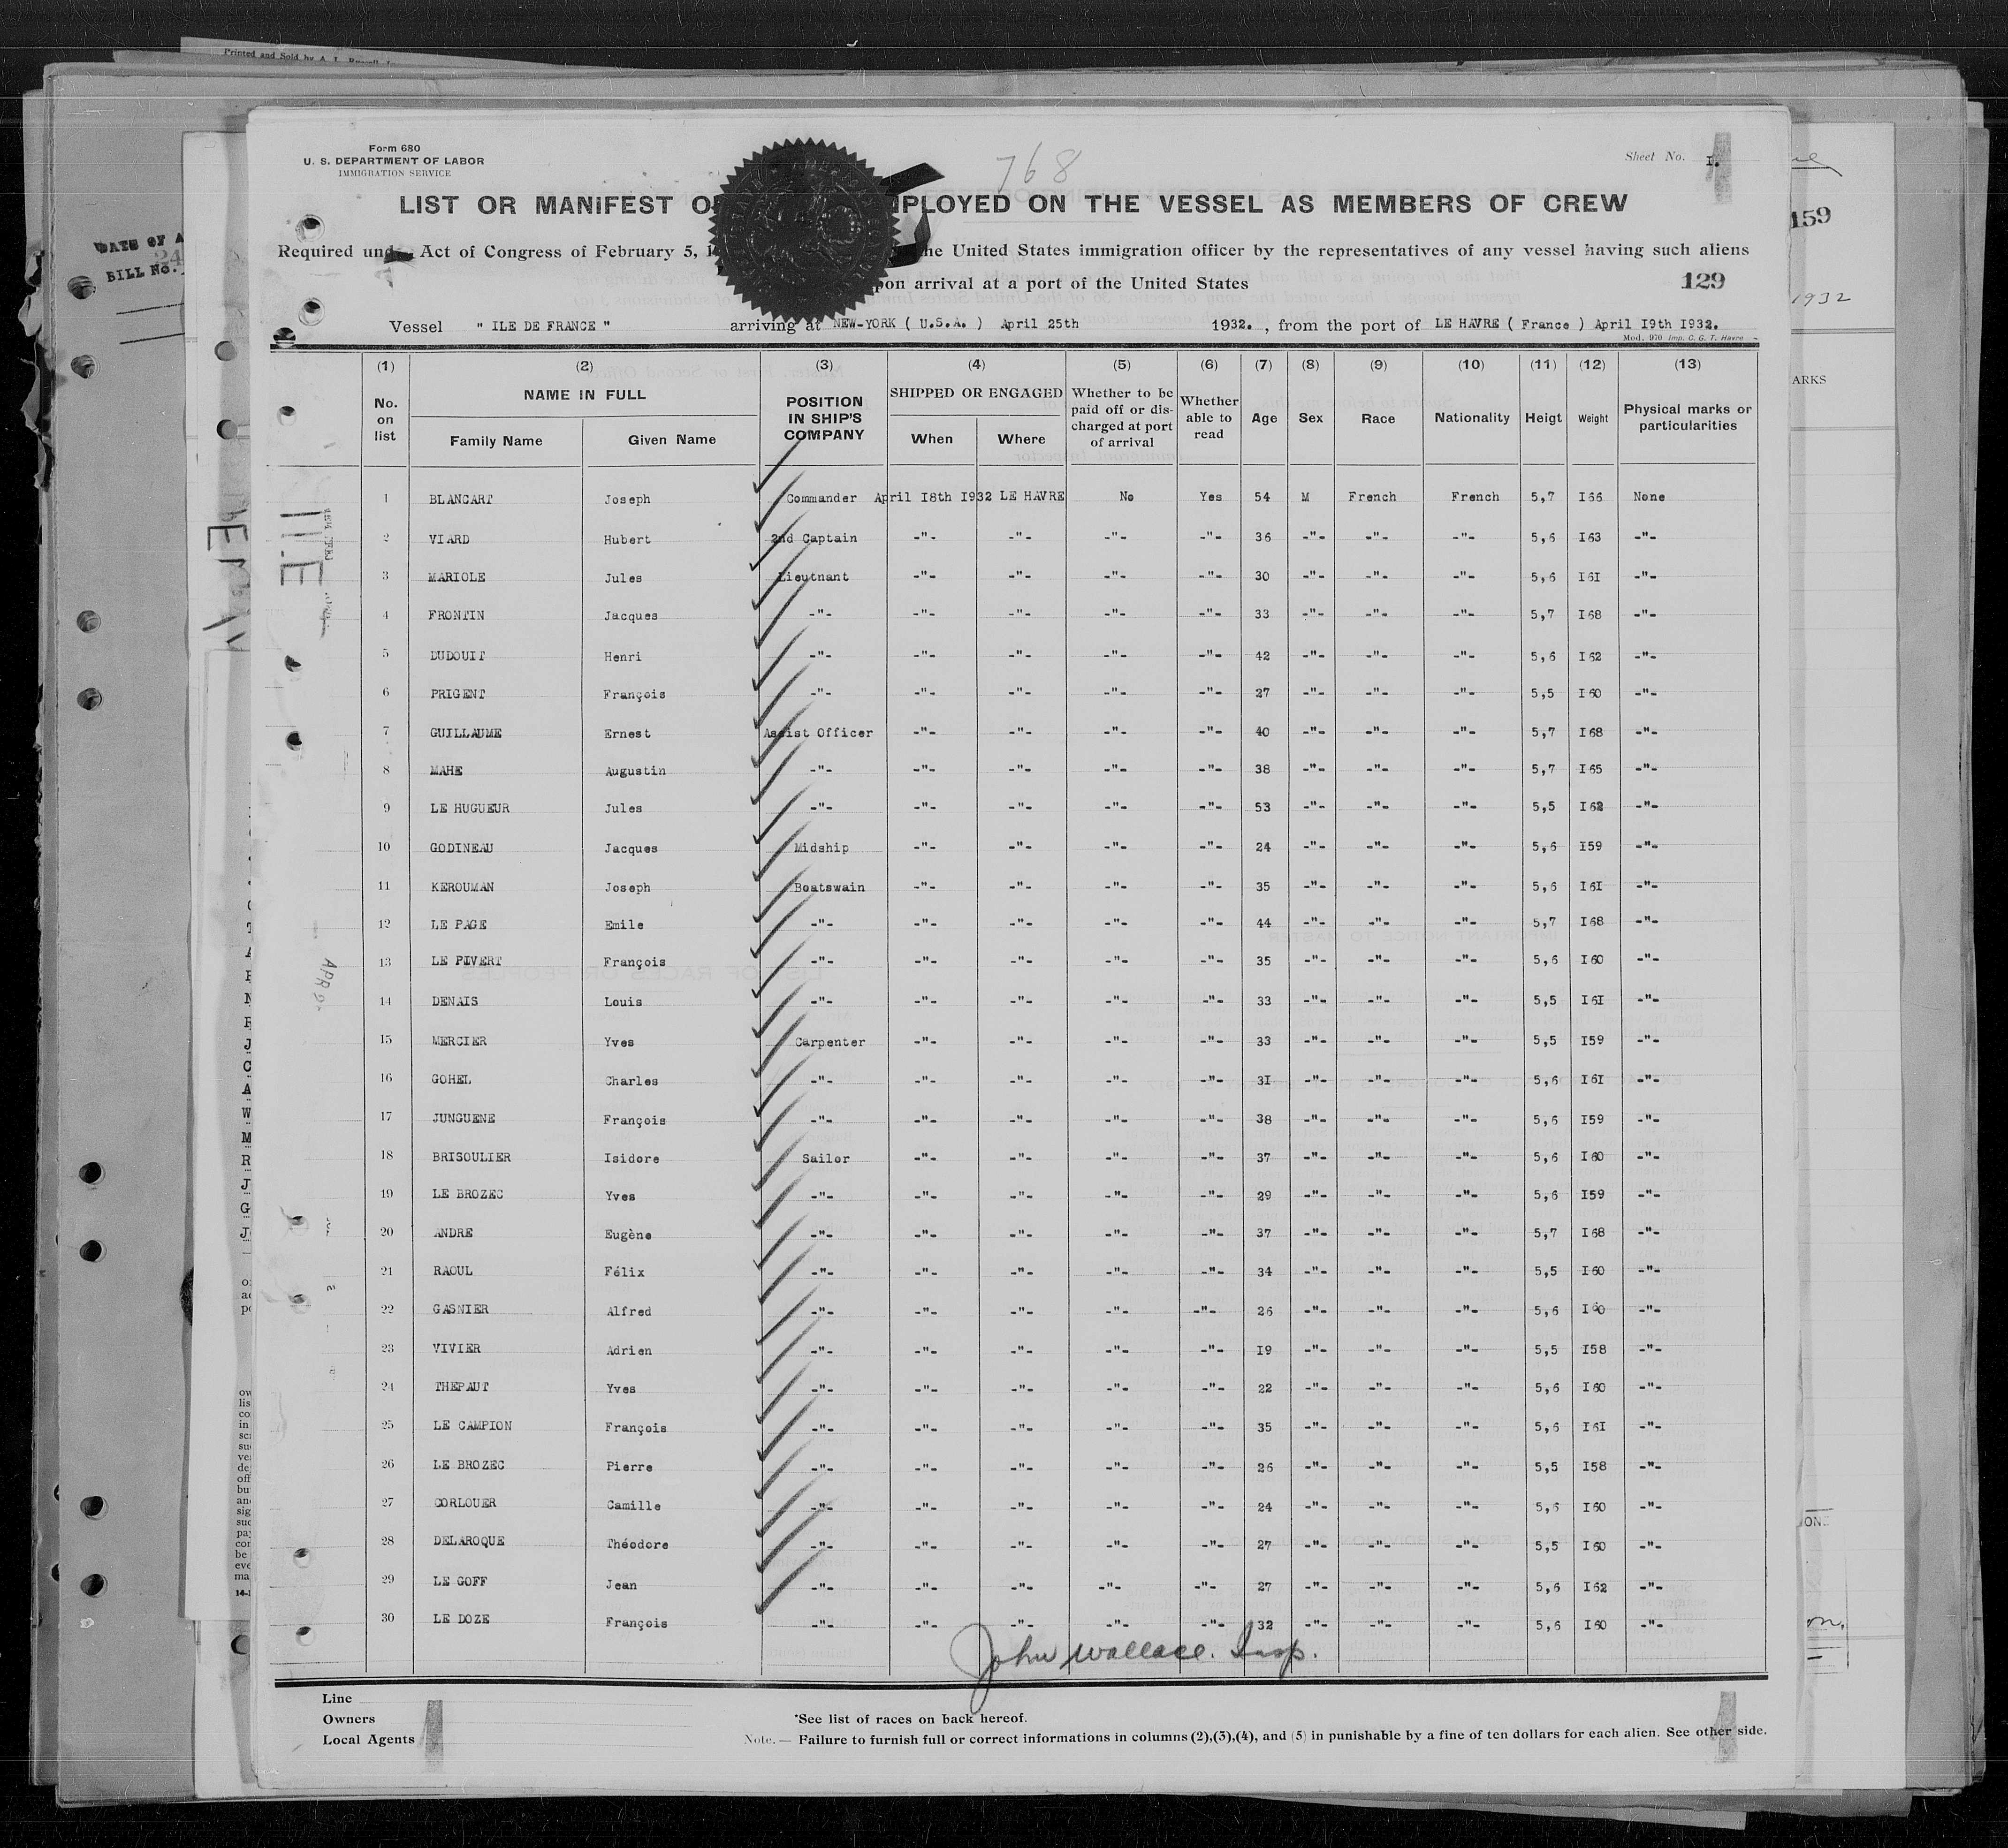 Printed and Sold by A. L.
Form 680
U. S. DEPARTMENT OF LABOR
IMMIGRATION SERVICE
768
Sheet No. I.
LIST OR MANIFEST O PLOYED ON THE VESSEL AS MEMBERS OF CREW
159
Required under Act of Congress of February 5, the United States immigration officer by the representatives of any vessel having such aliens
upon arrival at a port of the United States
129
DATE OF A
BILL No.
1932
Vessel " ILE DE FRANCE " arriving at NEW-YORK ( U.S.A. ) April 25th 1932. , from the port of LE HAVRE ( France ) April I9th I932.
Mod. 970 Imp. C. G. T. Havre
(1) (2) (3) (4) (5) (6) (7) (8) (9) (10) (11) (12) (13)
No. on list NAME IN FULL POSITION IN SHIP'S COMPANY SHIPPED OR ENGAGED Whether to be paid off or discharged at port of arrival Whether able to read Age Sex Race Nationality Heigt Weight Physical marks or particularities
Family Name Given Name When Where
ARKS
1 BLANCART Joseph Commander April I8th I932 LE HAVRE No Yes 54 M French French 5,7 I66 None
2 VIARD Hubert 2nd Captain -"- -"- -"- -"- 36 -"- -"- -"- 5,6 I63 -"-
3 MARIOLE Jules Lieutnant -"- -"- -"- -"- 30 -"- -"- -"- 5,6 I6I -"-
4 FRONTIN Jacques -"- -"- -"- -"- -"- 33 -"- -"- -"- 5,7 I68 -"-
5 DUDOUIT Henri -"- -"- -"- -"- -"- 42 -"- -"- -"- 5,6 I62 -"-
6 PRIGENT François -"- -"- -"- -"- -"- 27 -"- -"- -"- 5,5 I60 -"-
7 GUILLAUME Ernest Assist Officer -"- -"- -"- -"- 40 -"- -"- -"- 5,7 I68 -"-
8 MAHE Augustin -"- -"- -"- -"- -"- 38 -"- -"- -"- 5,7 I65 -"-
9 LE HUGUEUR Jules -"- -"- -"- -"- -"- 53 -"- -"- -"- 5,5 I62 -"-
10 GODINEAU Jacques Midship -"- -"- -"- -"- 24 -"- -"- -"- 5,6 I59 -"-
11 KEROUMAN Joseph Boatswain -"- -"- -"- -"- 35 -"- -"- -"- 5,6 I6I -"-
12 LE PAGE Emile -"- -"- -"- -"- -"- 44 -"- -"- -"- 5,7 I68 -"-
13 LE PIVERT François -"- -"- -"- -"- -"- 35 -"- -"- -"- 5,6 I60 -"-
14 DENAIS Louis -"- -"- -"- -"- -"- 33 -"- -"- -"- 5,5 I6I -"-
15 MERCIER Yves Carpenter -"- -"- -"- -"- 33 -"- -"- -"- 5,5 I59 -"-
16 GOHEL Charles -"- -"- -"- -"- -"- 3I -"- -"- -"- 5,6 I6I -"-
17 JUNGUENE François -"- -"- -"- -"- -"- 38 -"- -"- -"- 5,6 I59 -"-
18 BRISOULIER Isidore Sailor -"- -"- -"- -"- 37 -"- -"- -"- 5,6 I60 -"-
19 LE BROZEC Yves -"- -"- -"- -"- -"- 29 -"- -"- -"- 5,6 I59 -"-
20 ANDRE Eugène -"- -"- -"- -"- -"- 37 -"- -"- -"- 5,7 I68 -"-
21 RAOUL Félix -"- -"- -"- -"- -"- 34 -"- -"- -"- 5,5 I60 -"-
22 GASNIER Alfred -"- -"- -"- -"- -"- 26 -"- -"- -"- 5,6 I60 -"-
23 VIVIER Adrien -"- -"- -"- -"- -"- I9 -"- -"- -"- 5,5 I58 -"-
24 THEPAUT Yves -"- -"- -"- -"- -"- 22 -"- -"- -"- 5,6 I60 -"-
25 LE CAMPION François -"- -"- -"- -"- -"- 35 -"- -"- -"- 5,6 I6I -"-
26 LE BROZEC Pierre -"- -"- -"- -"- -"- 26 -"- -"- -"- 5,5 I58 -"-
27 CORLOUER Camille -"- -"- -"- -"- -"- 24 -"- -"- -"- 5,6 I60 -"-
28 DELAROQUE Théodore -"- -"- -"- -"- -"- 27 -"- -"- -"- 5,5 I60 -"-
29 LE GOFF Jean -"- -"- -"- -"- -"- 27 -"- -"- -"- 5,6 I62 -"-
30 LE DOZE François -"- -"- -"- -"- -"- 32 -"- -"- -"- 5,6 I60 -"-
John Wallace. Insp.
Line
Owners
Local Agents
*See list of races on back hereof.
Note. — Failure to furnish full or correct informations in columns (2),(3),(4), and (5) in punishable by a fine of ten dollars for each alien. See other side.